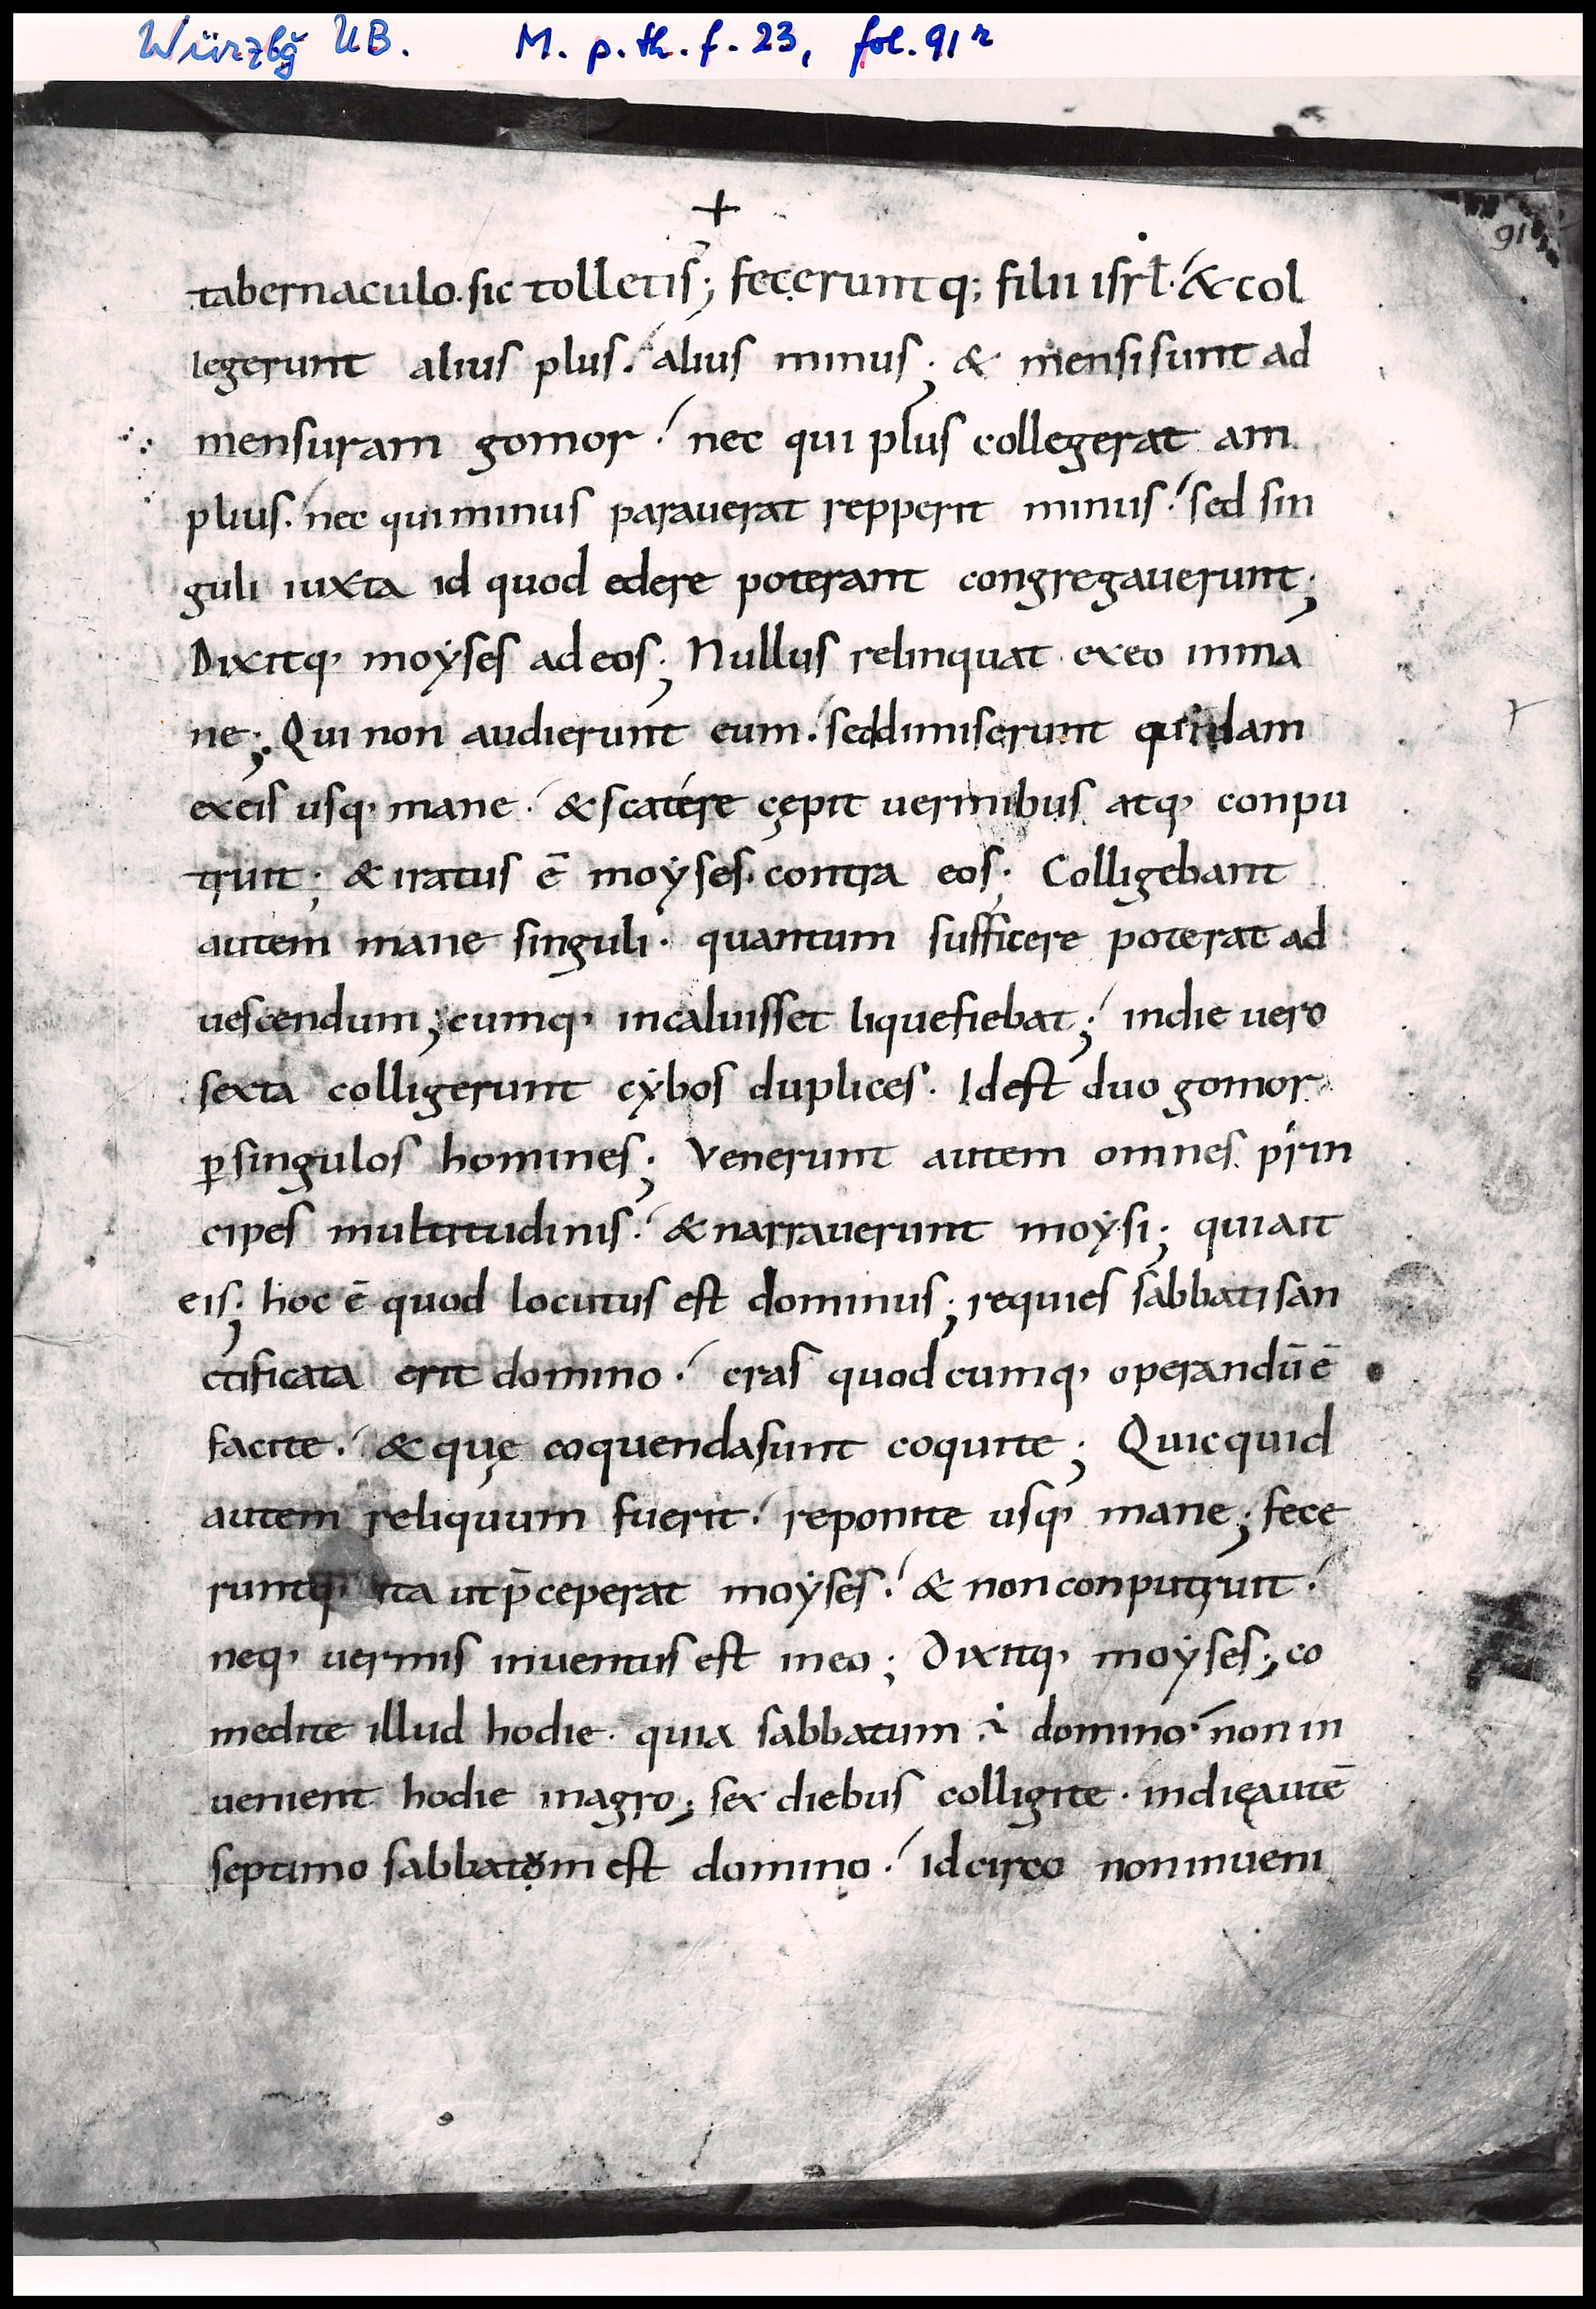 Würzbg UB. M. p. th. f. 23, fol. 91 r
+
91
tabernaculo. sic tolletis; fecerunt q; filii isrl. & col
legerunt alius plus. alius minus; & mensi sunt ad
mensuram gomor. nec qui plus collegerat am
plius. nec qui minus parauerat repperit minus. sed sin
guli iuxta id quod edere poterant congregauerunt;
Dixitq, moẏses ad eos; Nullus relinquat exeo inma
ne; Qui non audierunt eum. sed dimiserunt quidam
exeis usq, mane. & scatére cępit uermibus atq, conpu
truit; & iratus ē moẏses contra eos; Colligebant
autem mane singuli. quantum sufficere poterat ad
uescendum; cumq, incaluisset liquefiebat; indie uero
sexta colligerunt cẏbos duplices. Idest duo gomor
ꝑ singulos homines; Venerunt autem omnes prin
cipes multitudinis. & narrauerunt moẏsi; qui ait
eis; hoc ē quod locutus est dominus; requies sabbati san
ctificata erit domino. cras quodcumq, operandū ē
facite. & quę coquenda sunt coquite; Quicquid
autem reliquum fuerit. reponite usq, mane; fece
runtq, ita ut p̄ceperat moẏses. & non conputruit.
neq, uermis inuentus est ineo; Dixitq, moẏses; co
medite illud hodie. quia sabbatum ÷ domino. non in
uenient hodie inagro; sex diebus colligite. indię autē
septimo sabbatom est domino. idcirco non inueni